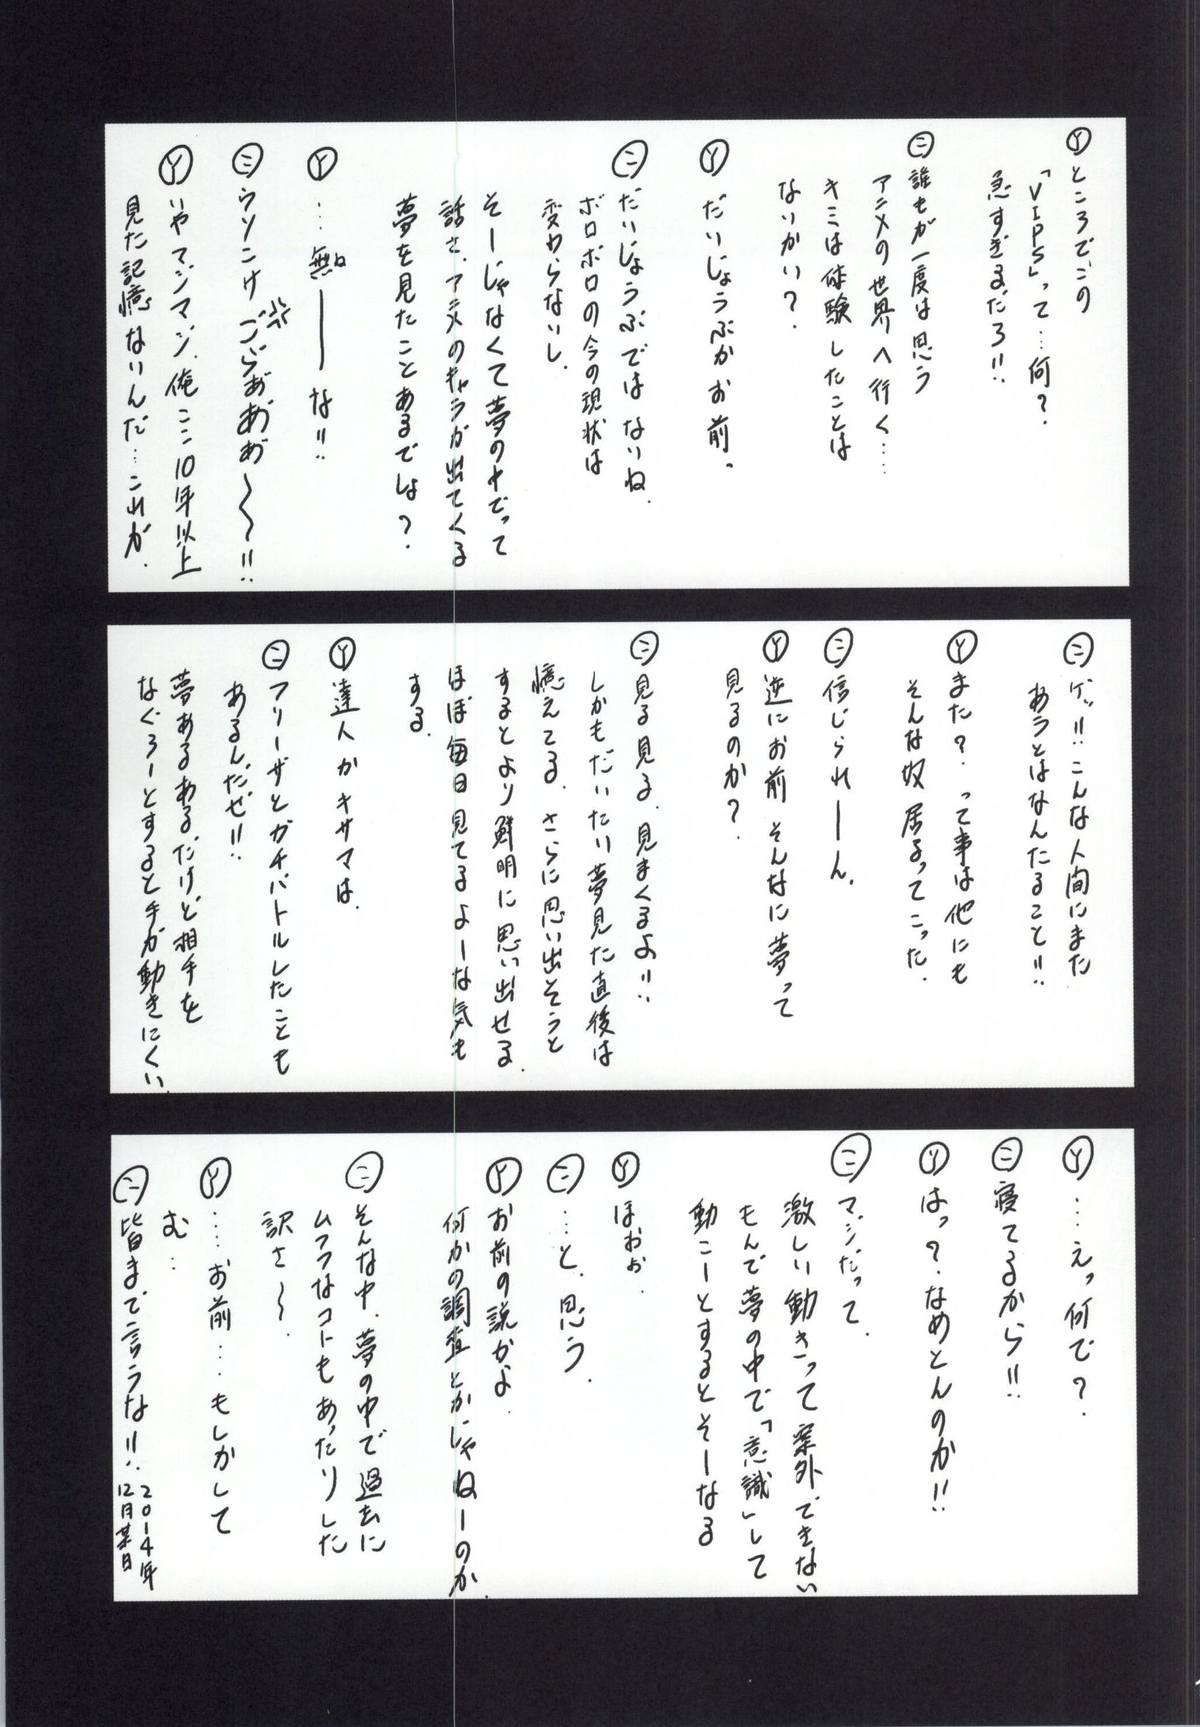 Ⓨところでこの
「VIPS」って…何？
急すぎるだろ!!
㊁誰もが一度は思う
アニメの世界へ行く……
キミは体験したことは
ないかい？
Ⓨだいじょうぶかお前。
㊁だいじょうぶではないね.
ボロボロの今の現状は
変わらないし.
そーじゃなくて夢の中でって
話さ.アニメのキャラが出てくる
夢を見たことあるでしょ？
Ⓨ…無ーーな!!
㊁ウソこけごらぁあ゛ぁ〜〜!!
Ⓨいやマジマジ.俺ここ10年以上
見た記憶ないんだ…これが.
㊁ゲッ!!こんな人間にまた
あうとはなんたること!!
Ⓨまた？って事は他にも
そんな奴居るってこった.
㊁信じられーん.
Ⓨ逆にお前そんなに夢って
見るのか？
㊁見る見る.見まくるよ!!
しかもだいたい夢見た直後は
憶えてる.さらに思い出そうと
するとより鮮明に思い出せる.
ほぼ毎日見てるよーな気も
する.
Ⓨ達人かキサマは.
㊁フリーザとガチバトルしたことも
あるんだぜ!!
夢あるある.だけど相手を
なぐろーとすると手が動きにくい.
Ⓨ…えっ何で？
㊁寝てるから!!
Ⓨはっ？なめとんのか!!
㊁マジだって.
激しい動きって案外できない
もんで夢の中で「意識」して
動こーとするとそーなる
Ⓨほぉぉ.
㊁…と、思う.
Ⓨお前の説かよ.
何かの調査とかじゃねーのか.
㊁そんな中.夢の中で過去に
ムフフなコトもあったりした
訳さ〜.
Ⓨ……お前…もしかして
む…
㊁皆まで言うな!!
2014年
12月某日